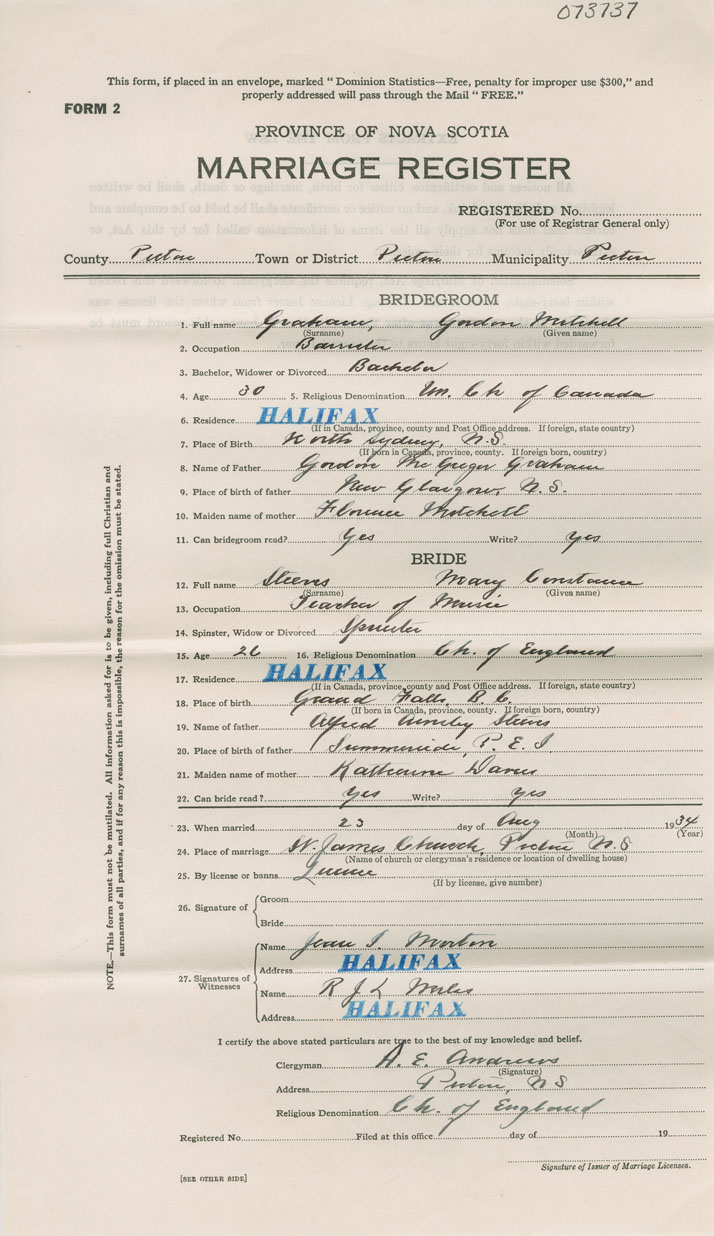 073737
This form, if placed in an envelope, marked “ Dominion Statistics—Free, penalty for improper use $300,” and
properly addressed will pass through the Mail “ FREE.”
FORM 2
PROVINCE OF NOVA SCOTIA
MARRIAGE REGISTER
REGISTERED No.
(For use of Registrar General only)
County Pictou Town or District Pictou Municipality Pictou
BRIDEGROOM
1. Full name Graham, Gordon Mitchell
(Surname) (Given name)
2. Occupation Barrister
3. Bachelor, Widower or Divorced Bachelor
4. Age 30 5. Religious Denomination Un. Ch of Canada
6. Residence HALIFAX
(If in Canada, province, county and Post Office address. If foreign, state country)
7. Place of Birth North Sydney, N.S.
(If born in Canada, province, county. If foreign born, country)
8. Name of Father Gordon McGregor Graham
9. Place of birth of father New Glasgow, N.S.
10. Maiden name of mother Florence Mitchell
11. Can bridegroom read? Yes Write? Yes
BRIDE
12. Full name Steeves Mary Constance
(Surname) (Given name)
13. Occupation Teacher of Music
14. Spinster, Widow or Divorced Spinster
15. Age 26 16. Religious Denomination Ch. of England
17. Residence HALIFAX
(If in Canada, province, county and Post Office address. If foreign, state country)
18. Place of birth Grand Falls, B.C.
(If born in Canada, province, county. If foreign born, country)
19. Name of father Alfred Steeves
20. Place of birth of father Summerside, P.E.I
21. Maiden name of mother Katherine Davis
22. Can bride read? Yes Write? Yes
23. When married 23 day of Aug 1934
(Month) (Year)
24. Place of marriage St. James Church, Pictou N.S
(Name of church or clergyman's residence or location of dwelling house)
25. By license or banns License
(If by license, give number)
26. Signature of Groom
Bride
27. Signatures of Witnesses Name Jean I. Morton
Address HALIFAX
Name R J L
Address HALIFAX
I certify the above stated particulars are true to the best of my knowledge and belief.
Clergyman A. E. Andrews
(Signature)
Address Pictou, NS
Religious Denomination Ch. of England
Registered No. Filed at this office day of 19
Signature of Issuer of Marriage Licenses.
[SEE OTHER SIDE]
NOTE.—This form must not be mutilated. All information asked for is to be given, including full Christian and
surnames of all parties, and if for any reason this is impossible, the reason for the omission must be stated.